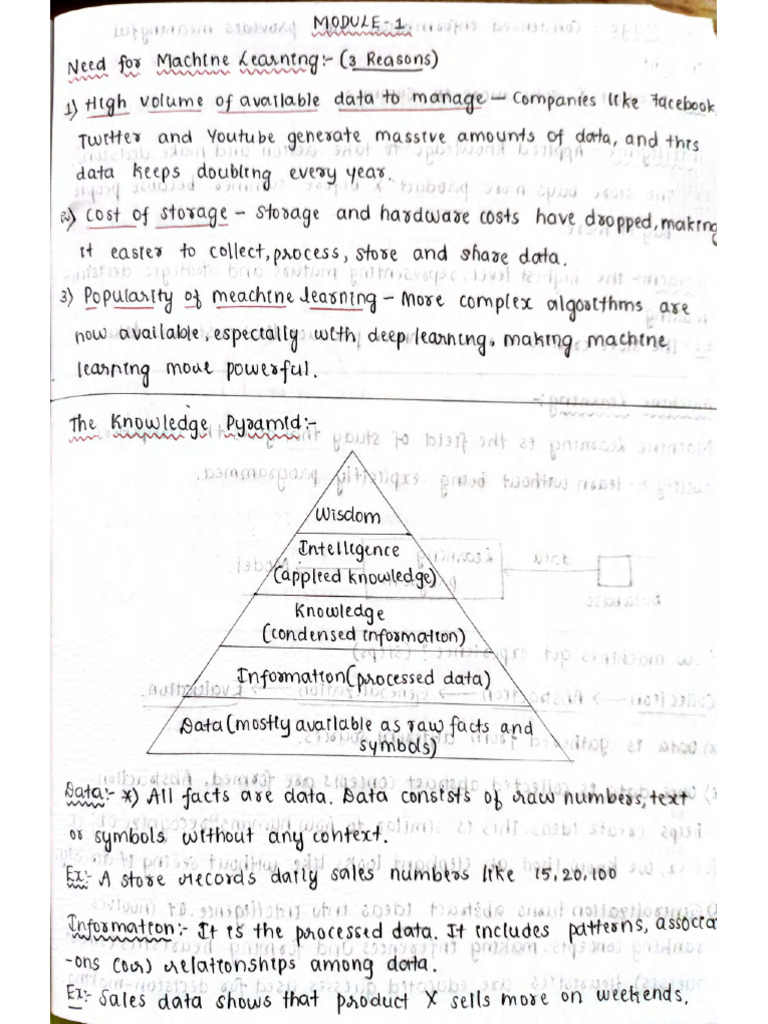 MODULE-1
Need for Machine Learning:- (3 Reasons)
1) High volume of available data to manage - Companies like Facebook,
Twitter and Youtube generate massive amounts of data, and this
data keeps doubling every year.
2) Cost of storage - Storage and hardware costs have dropped, making
it easier to collect, process, store and share data.
3) Popularity of meachine learning - More complex algorithms are
now available, especially with deep learning, making machine
learning more powerful.
The Knowledge Pyramid:-
Wisdom
Intelligence
(applied knowledge)
Knowledge
(condensed information)
Information (processed data)
Data (mostly available as raw facts and
symbols)
Data:- *) All facts are data. Data consists of raw numbers, text
or symbols without any context.
Ex:- A store records daily sales numbers like 15, 20, 100
Information:- It is the processed data. It includes patterns, associa
-ons (or) relationships among data.
Ex:- Sales data shows that product X sells more on weekends.